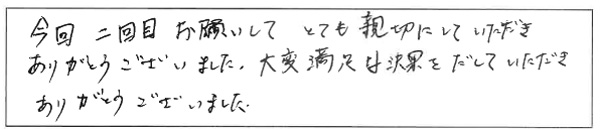 今回 二回目 お願いして とても親切にしていただき
ありがとうございました。大変満足な決果をだしていただき
ありがとうございました。